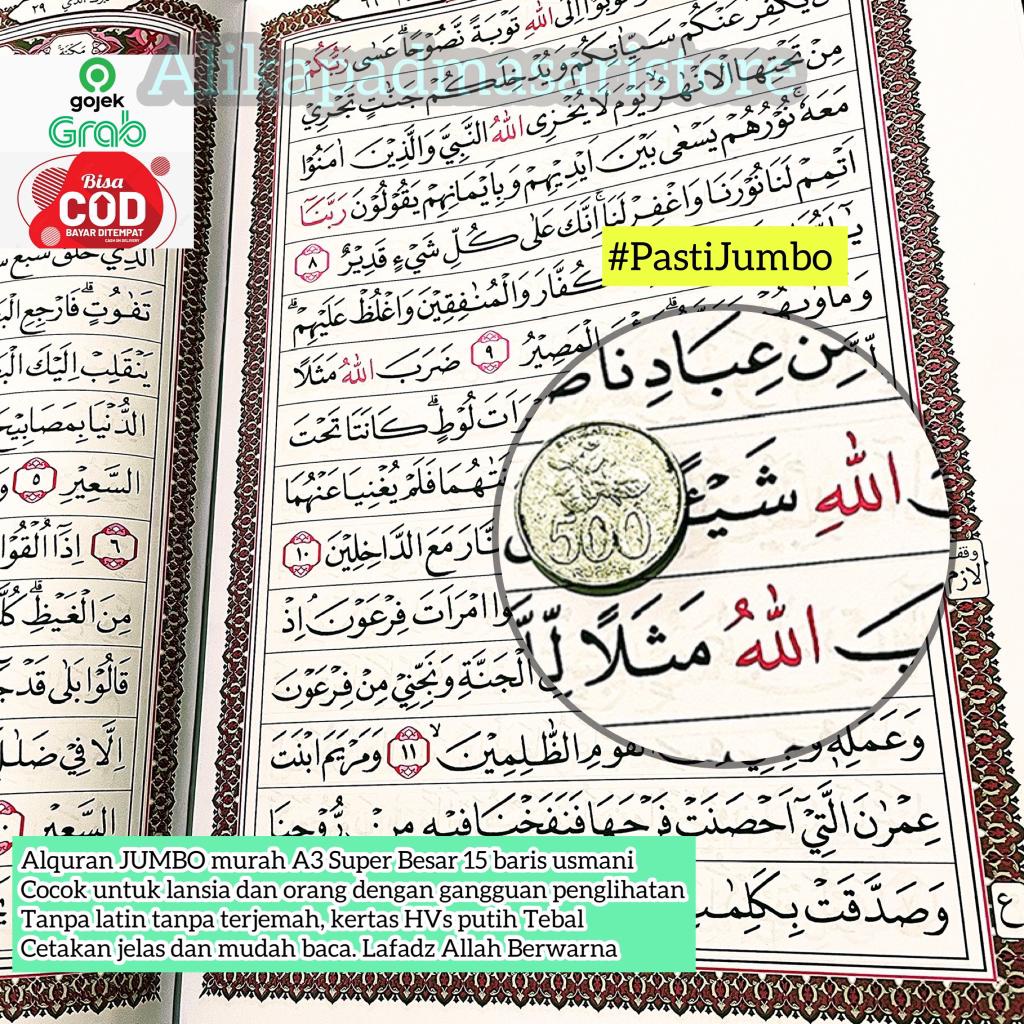 ٢٩
Alikapadmasaristore
gojek
Grab
Bisa
COD
BAYAR DITEMPAT
CASH ON DELIVERY
#PastiJumbo
اللهِ تَوْبَةً نَّصُوْحًاۗ عَسٰى رَبُّكُمْ
يُّكَفِّرَ عَنْكُمْ سَيِّاٰتِكُمْ وَيُدْخِلَكُمْ جَنّٰتٍ تَجْرِيْ
مِنْ تَحْتِهَا الْاَنْهٰرُۙ يَوْمَ لَا يُخْزِى اللهُ النَّبِيَّ وَالَّذِيْنَ اٰمَنُوْا
مَعَهٗۚ نُوْرُهُمْ يَسْعٰى بَيْنَ اَيْدِيْهِمْ وَبِاَيْمَانِهِمْ يَقُوْلُوْنَ رَبَّنَآ
اَتْمِمْ لَنَا نُوْرَنَا وَاغْفِرْ لَنَاۚ اِنَّكَ عَلٰى كُلِّ شَيْءٍ قَدِيْرٌ ٨
كُفَّارَ وَالْمُنٰفِقِيْنَ وَاغْلُظْ عَلَيْهِمْۗ
وَمَأْوٰىهُمْ الْمَصِيْرُ ٩ ضَرَبَ اللهُ مَثَلًا
لُوْطٍۗ كَانَتَا تَحْتَ
فَلَمْ يُغْنِيَا عَنْهُمَا
مَعَ الدَّاخِلِيْنَ ١٠
امْرَاَتَ فِرْعَوْنَۘ اِذْ
الْجَنَّةِ وَنَجِّنِيْ مِنْ فِرْعَوْنَ
وَعَمَلِهٖ الظّٰلِمِيْنَۙ ١١ وَمَرْيَمَ ابْنَتَ
عِمْرٰنَ الَّتِيْٓ اَحْصَنَتْ فَرْجَهَا فَنَفَخْنَا فِيْهِ مِنْ رُّوْحِنَا
وَصَدَّقَتْ
مِّنْ عِبَادِنَا
اللهِ شَيْـًٔا
500
بَ اللهُ مَثَلًا لِّ
وقف
لازم
ع
الَّذِيْ خَلَقَ سَبْعَ
تَفٰوُتٍۗ فَارْجِعِ
يَنْقَلِبْ اِلَيْكَ
الدُّنْيَا بِمَصَابِيْحَ
السَّعِيْرِ ٥
٦ اِذَآ اُلْقُوْا
مِنَ الْغَيْظِۗ
قَالُوْا بَلٰى قَدْ
اِلَّا فِيْ ضَلٰلٍ
السَّعِيْرِ
Alquran JUMBO murah A3 Super Besar 15 baris usmani
Cocok untuk lansia dan orang dengan gangguan penglihatan
Tanpa latin tanpa terjemah, kertas HVs putih Tebal
Cetakan jelas dan mudah baca. Lafadz Allah Berwarna